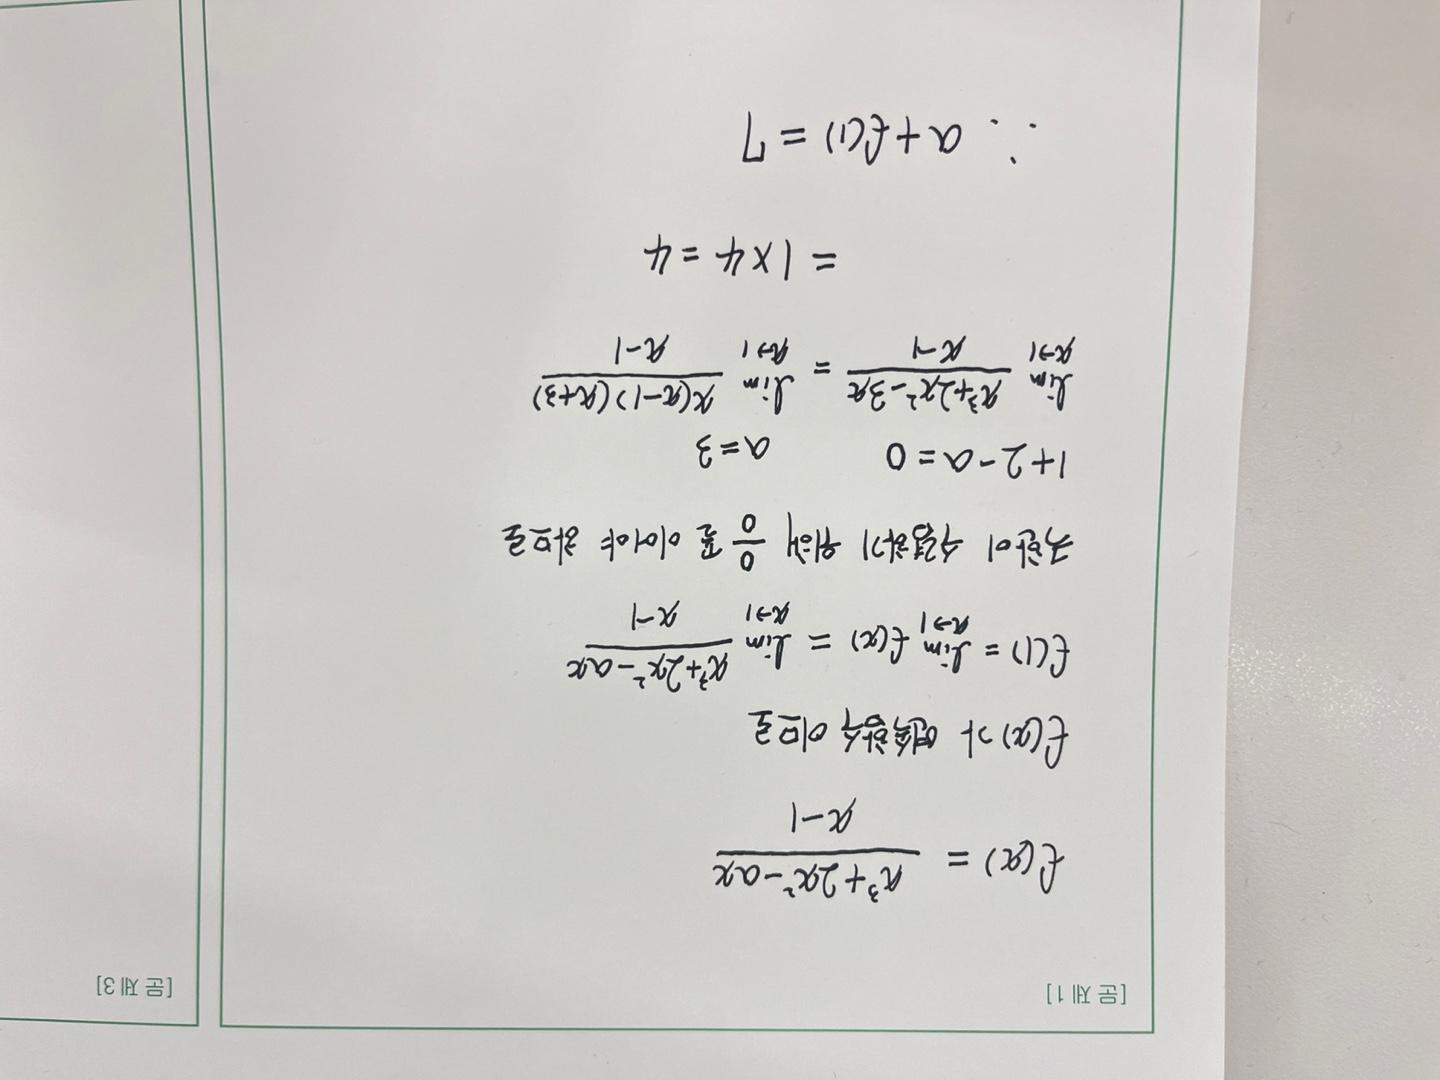 [문제 1]
f(x) = \frac{x³+2x²-ax}{x-1}
f(x)가 연속함수 이므로
f(1) = \lim_{x→1} f(x) = \lim_{x→1} \frac{x³+2x²-ax}{x-1}
극한이 수렴하기 위해 \frac{0}{0} 꼴 이어야 하므로
1+2-a=0 a=3
\lim_{x→1} \frac{x³+2x²-3x}{x-1} = \lim_{x→1} \frac{x(x-1)(x+3)}{x-1}
= 1×4 = 4
∴ a+f(1) = 7
[문제 3]